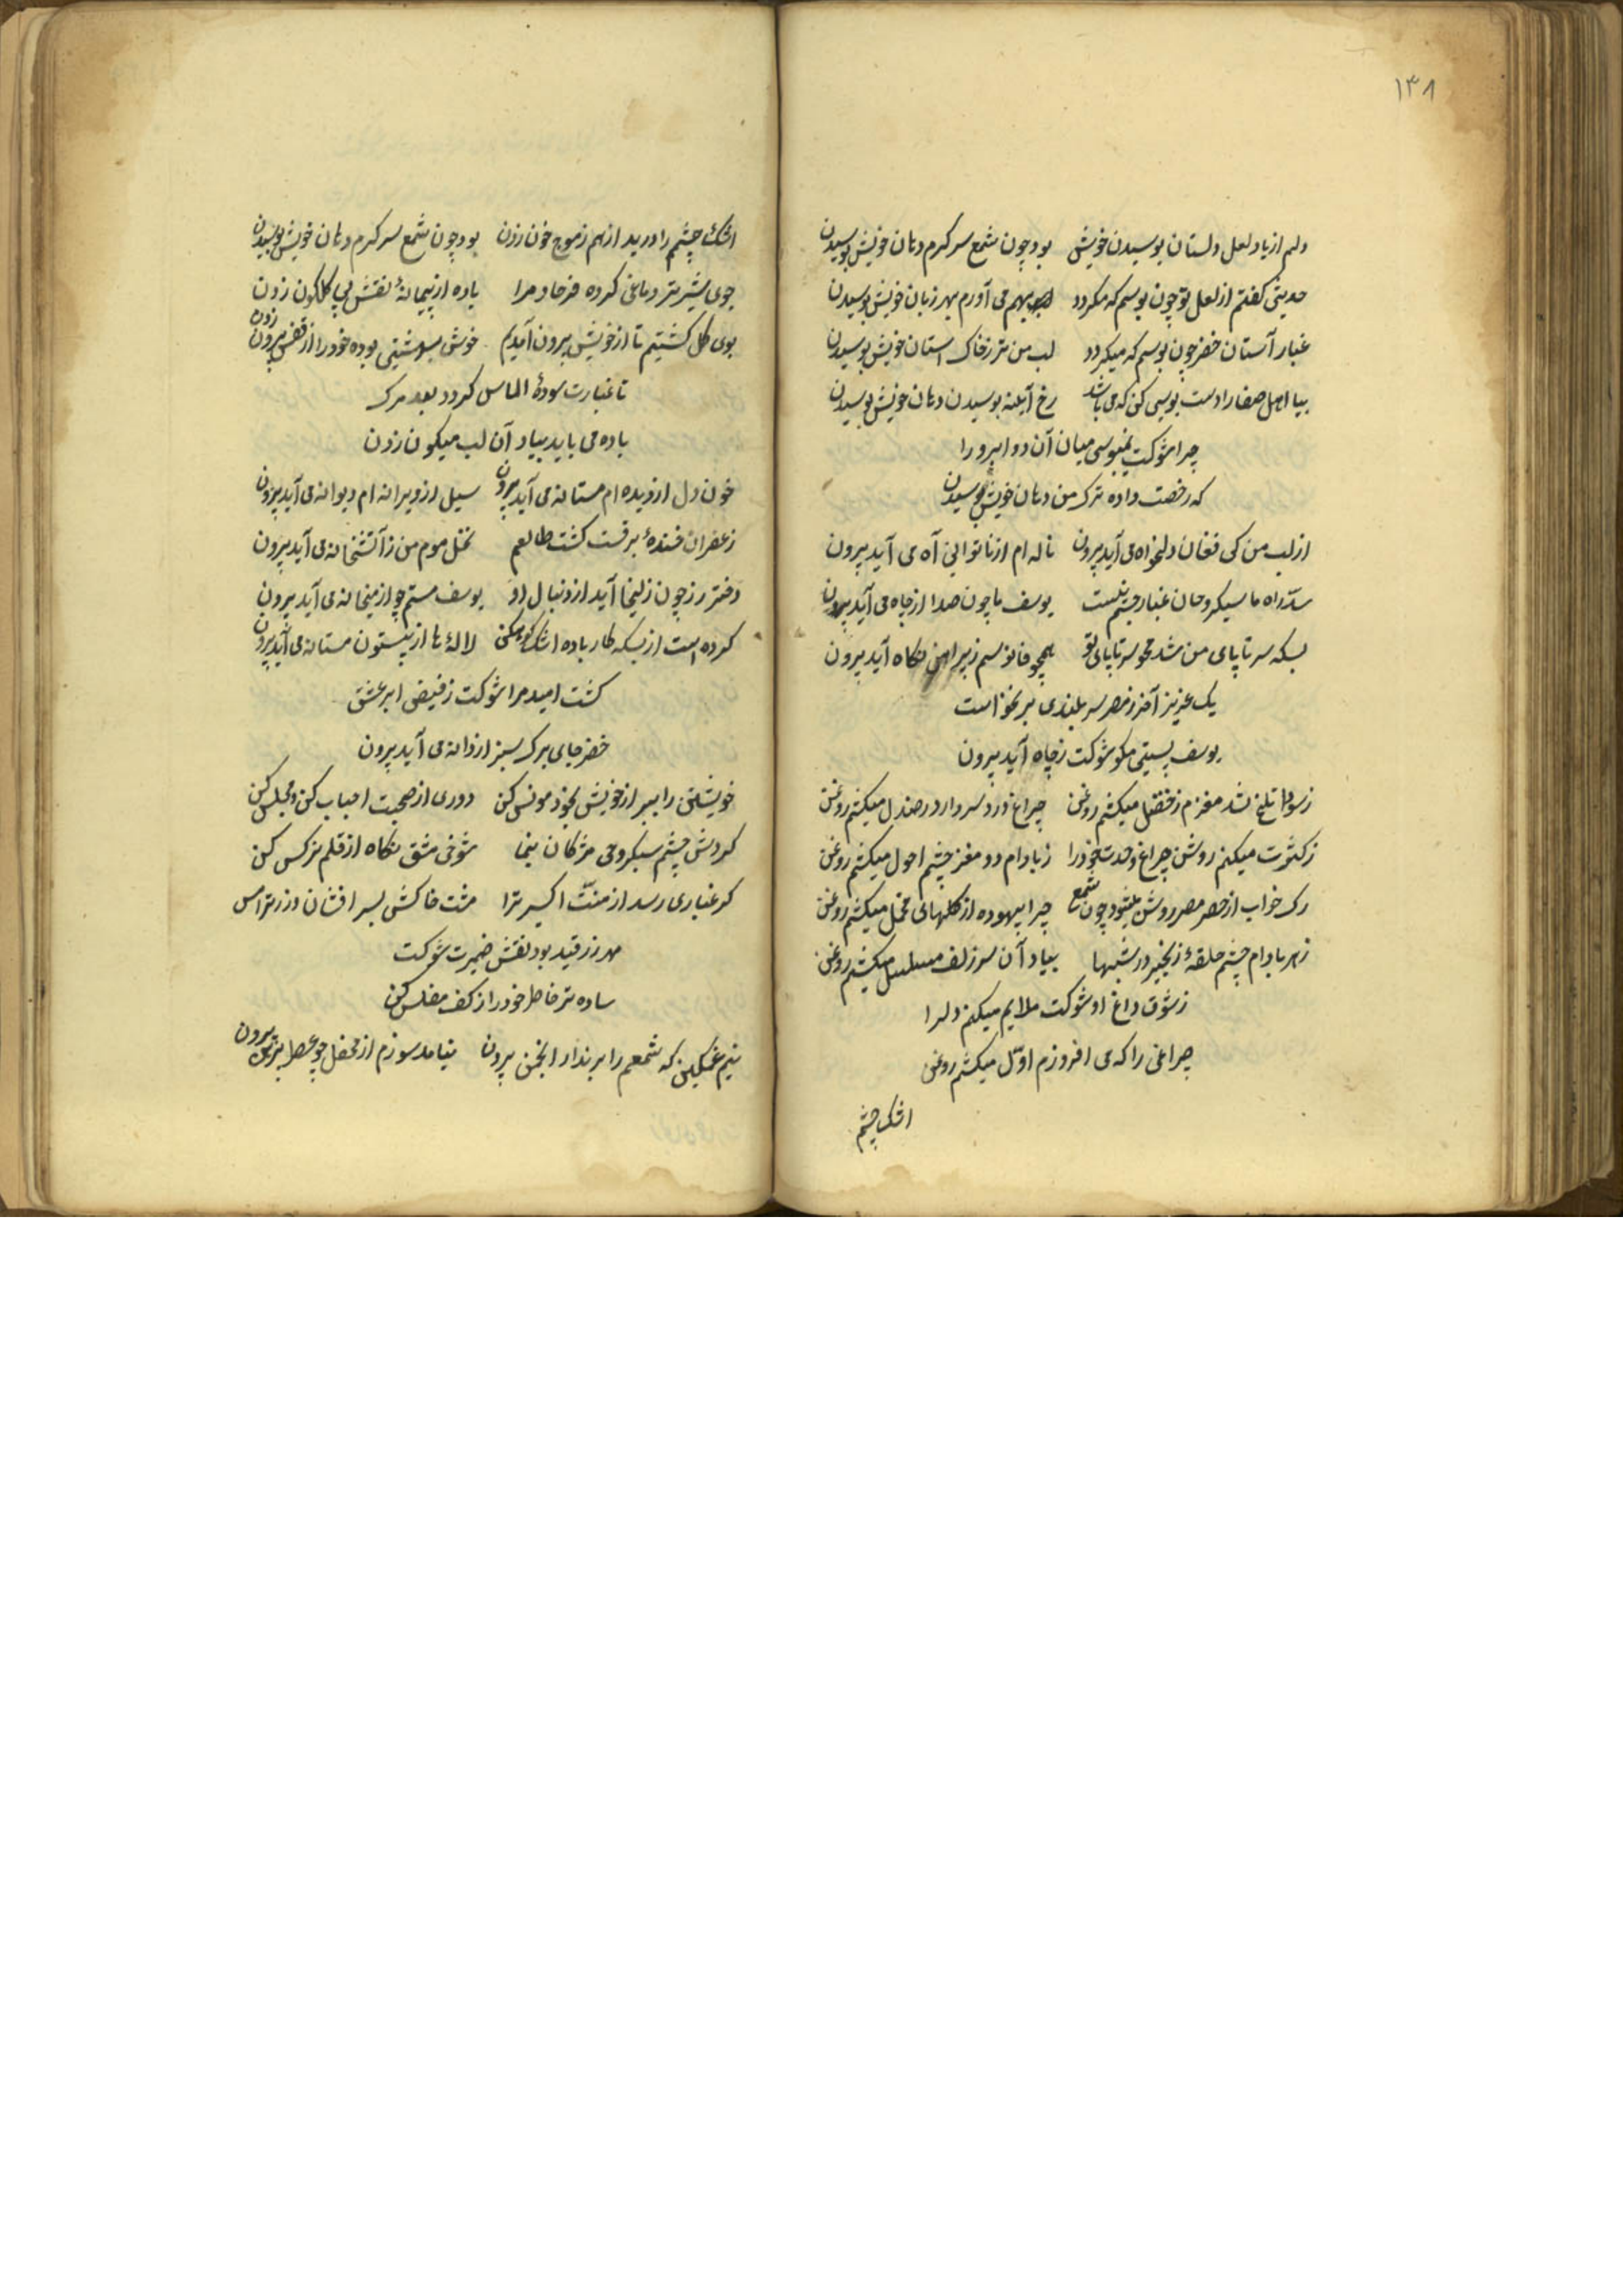 ۱۳۸
دلم از یاد لعل دلستان بوسیدن خویش بود چون شمع سر کرم دهان خویش بوسیدن
حدیثی کفتم از لعل تو چون بوسم که میکردد بهم می آورم بهر زبان خویش بوسیدن
غبار آستان خضر چون بوسم که میکردد لب من تر ز خاک استان خویش بوسیدن
بیا اهل صفا را دست بوسی کن که می باشد رخ آینه بوسیدن دهان خویش بوسیدن
چرا شوکت نمیبوسی میان آن دو ابرو را
که رخصت داده ترک من دهان خویش بوسیدن
از لب من کی فغان دلخواه می آید بیرون ناله ام از ناتوانی آه می آید بیرون
سدّ راه ما سبکروحان غبار جسم نیست یوسف ما چون صدا از چاه می آید بیرون
بسکه سر تا پای من شد محو سر تا پای تو همچو فانوسم ز پیراهن نکاه آید بیرون
یک عزیز آخر ز مصر سربلندی بر نخواست
یوسف بستی مکو شوکت ز چاه آید بیرون
ز سودا تلخ شد مغزم ز حنظل میکشم روغن چراغ درد سر دارد ز صندل میکشم روغن
ز کثرت میکنم روشن چراغ وحدت خود را ز بادام دو مغز چشم احول میکشم روغن
رک خواب از مصر روشن میشود چون شمع چرا بیهوده از کلهای مخمل میکشم روغن
ز هر بادام چشم حلقهٔ زنجیر در شبها بیاد آن سر زلف مسلسل میکشم روغن
ز شوق داغ او شوکت ملایم میکنم دل را
چراغی را که می افروزم اوّل میکشم روغن
اشک چشم
اشک چشم را درید از هم ز موج خون زدن بود چون شمع سر کرم دهان خویش بوسیدن
جوی شیر تر دماغی کرده فرهاد مرا باده از پیمانهٔ نقش پی کلکون زدن
بوی کل کشتیم تا از خویش بیرون آمدیم خوش بود خود را از قفس بیرون زدن
تا غبارت سودهٔ الماس کردد بعد مرک
باده می باید بیاد آن لب میکون زدن
خون دل از دیده ام مستانه می آید بیرون سیل از ویرانه ام دیوانه می آید بیرون
زعفران خندهٔ برقست کشت طالعم نخل موم من ز آتشخانه می آید بیرون
دختر رز چون زلیخا آید از دنبال او یوسف مستم چو از میخانه می آید بیرون
کرده است از بسکه کار باده اشک کوهکن لالهٔ ها از بیستون مستانه می آید بیرون
کشت امید مرا شوکت ز فیض ابر عشق
خضر جای برک سبز از دانه می آید بیرون
خویشتن را ببر از خویش بخود مونس کن دوری از صحبت احباب کن و مجلس کن
کردش چشم سبکروحی مژکان بنما شوخی مشق نکاه از قلم نرکس کن
کر غباری رسد از منّت اکسیر ترا مشت خاکش بسر افشان و زر تر امس
مهر زر قید بود نقش ضمیرت شوکت
ساده تر خاطر خود را از کف مفلس کن
نیم غمکین که شمعم را برند از انجمن بیرون نیامد سوزم از محفل چو عطر بیرون